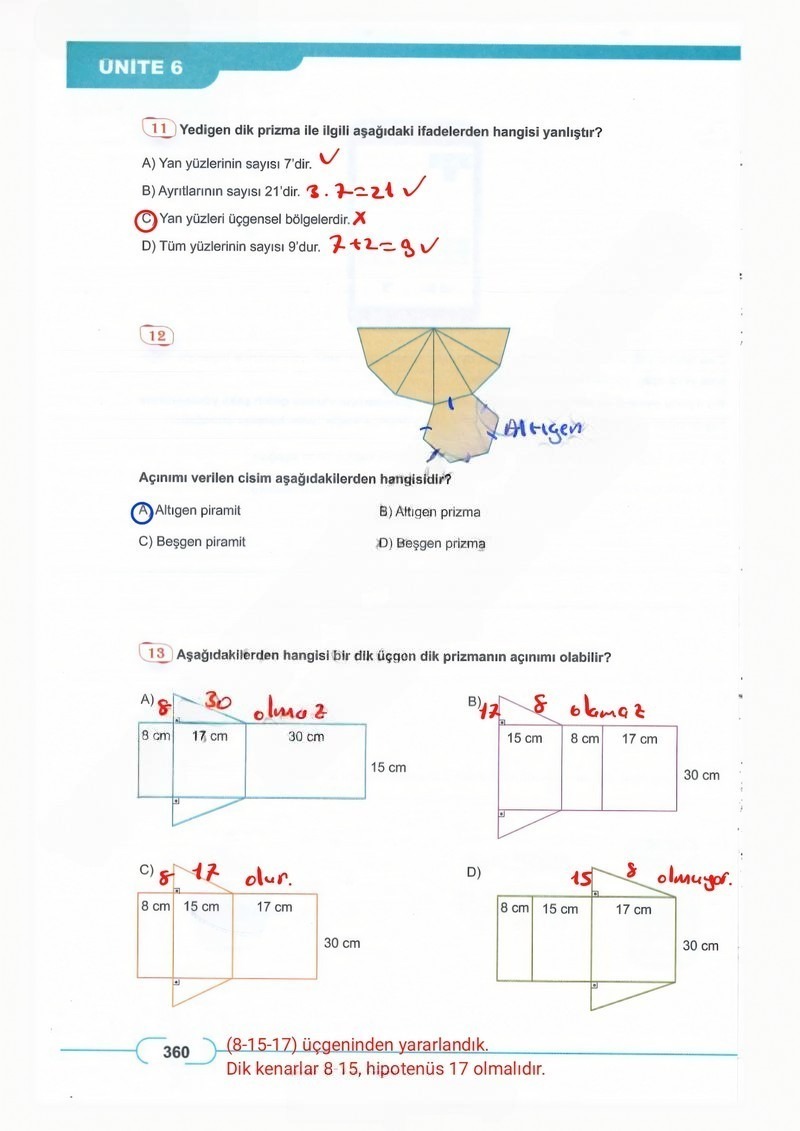 ÜNİTE 6
11 Yedigen dik prizma ile ilgili aşağıdaki ifadelerden hangisi yanlıştır?
A) Yan yüzlerinin sayısı 7'dir. ✓
B) Ayrıtlarının sayısı 21'dir. 3.7=21 ✓
C) Yan yüzleri üçgensel bölgelerdir. X
D) Tüm yüzlerinin sayısı 9'dur. 7+2=9 ✓
12
Altıgen
Açınımı verilen cisim aşağıdakilerden hangisidir?
A) Altıgen piramit B) Altıgen prizma
C) Beşgen piramit D) Beşgen prizma
13 Aşağıdakilerden hangisi bir dik üçgen dik prizmanın açınımı olabilir?
A) 8 30 olmaz
8 cm 17 cm 30 cm
15 cm
B) 17 8 olamaz
15 cm 8 cm 17 cm
30 cm
C) 8 17 olur.
8 cm 15 cm 17 cm
30 cm
D) 15 8 olmuyor.
8 cm 15 cm 17 cm
30 cm
360
(8-15-17) üçgeninden yararlandık.
Dik kenarlar 8-15, hipotenüs 17 olmalıdır.